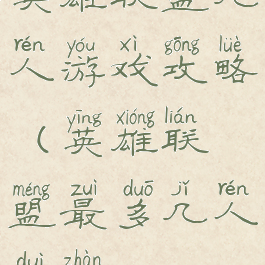 英雄联盟几
rén yóu xì gōng lüè
人游戏攻略
yīng xióng lián
（英雄联
méng zuì duō jǐ rén
盟最多几人
duì zhàn